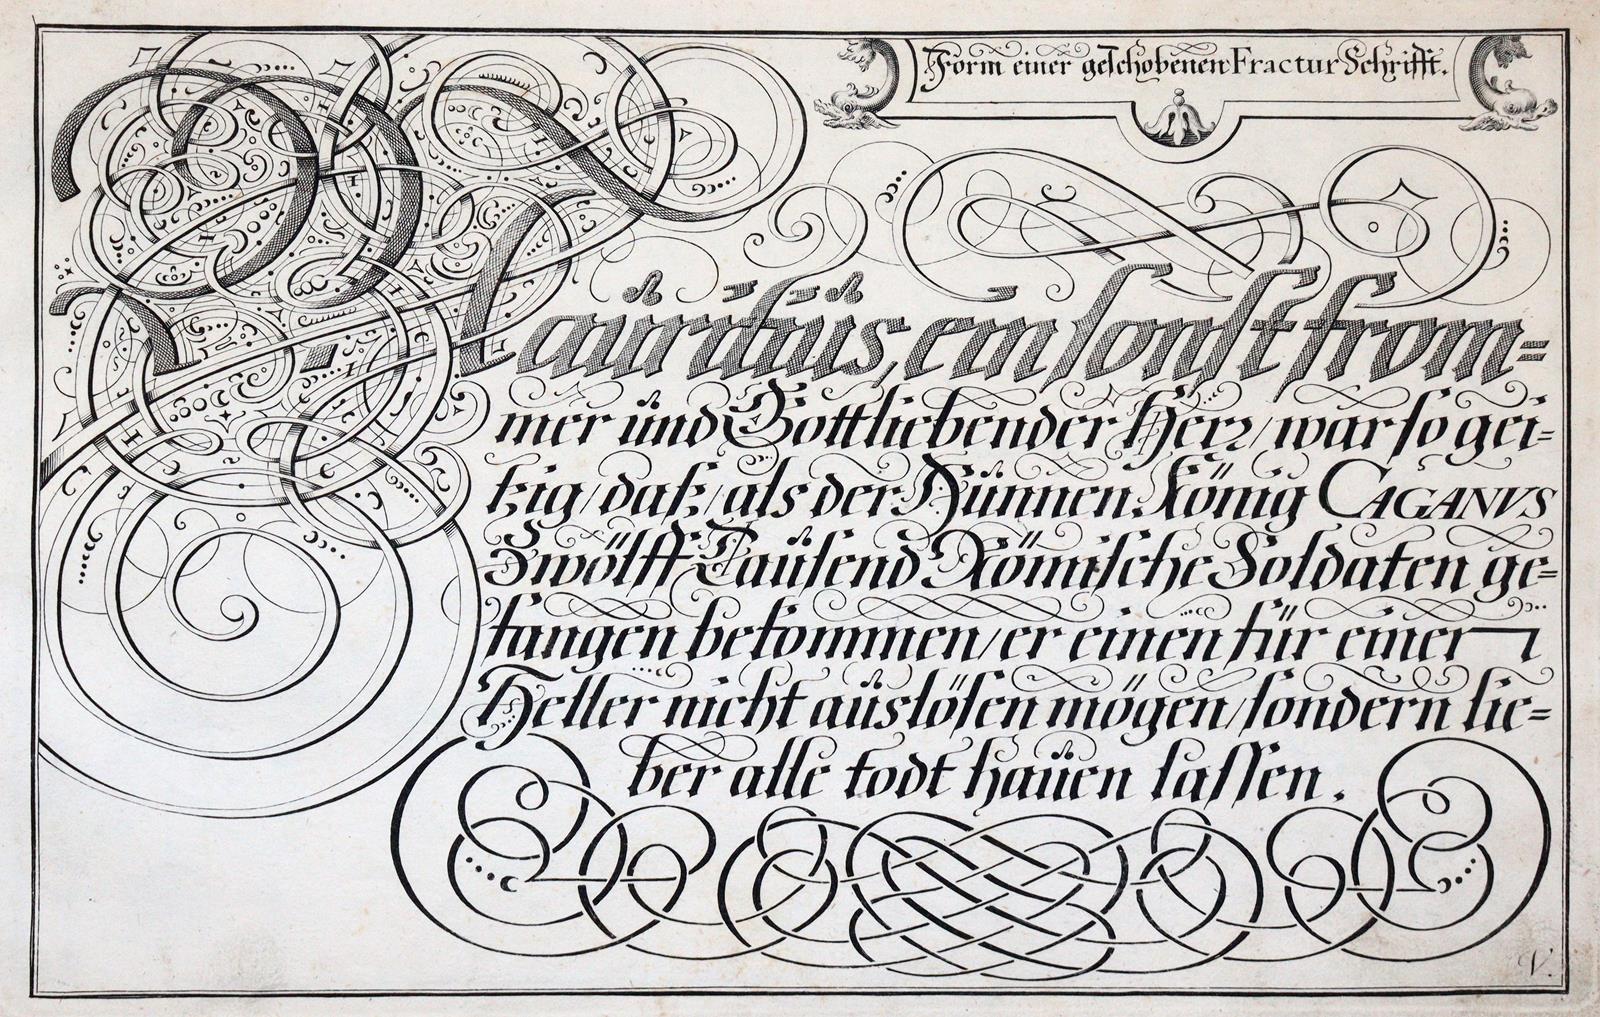 Form einer geschobenen Fractur Schrifft.
Mauritius, ein sonst from=
mer und Gottliebender Herz / war so gei=
tzig / daß / als der Hünnen König CAGANVS
Zwölff Tausend Römische Soldaten ge=
fangen bekommen / er einen für einer
Heller nicht auslösen mögen / sondern lie=
ber alle todt hauen lassen.
V.